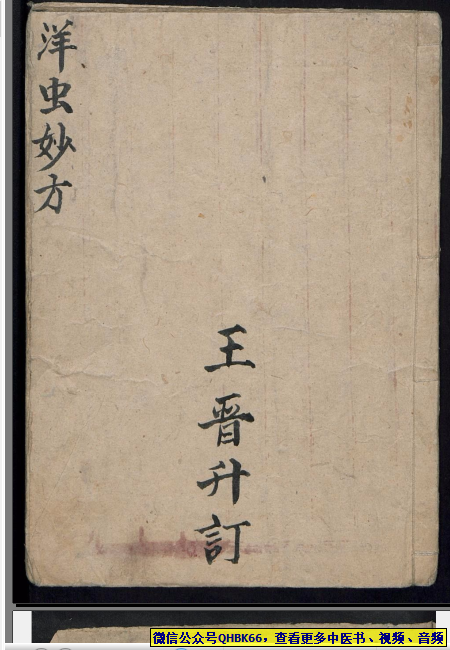 洋虫妙方
王晋升訂
微信公众号QHBK66，查看更多中医书、视频、音频